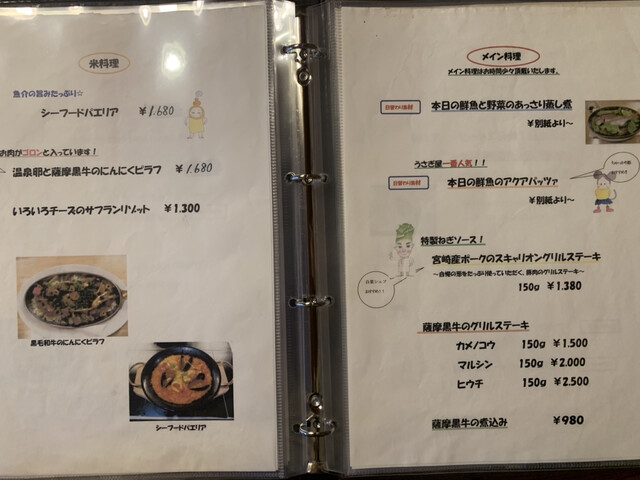 米料理
魚介の旨みたっぷり☆
シーフードパエリア ￥1.680
お肉がゴロンと入っています！
温泉卵と薩摩黒牛のにんにくピラフ ￥1680
いろいろチーズのサフランリゾット ￥1.300
黒毛和牛のにんにくピラフ
シーフードパエリア
メイン料理
メイン料理はお時間少々頂戴いたします。
本日の鮮魚と野菜のあっさり蒸し煮
￥別紙より～
うさぎ屋一番人気！！
本日の鮮魚のアクアパッツァ
￥別紙より～
特製ねぎソース！
宮崎産ポークのスキャリオングリルステーキ
～自慢の葱をたっぷり使っていただく、豚肉のグリルステーキ～
150g ￥1.380
薩摩黒牛のグリルステーキ
カメノコウ 150g ￥1.500
マルシン 150g ￥2.000
ヒウチ 150g ￥2.500
薩摩黒牛の煮込み ￥980